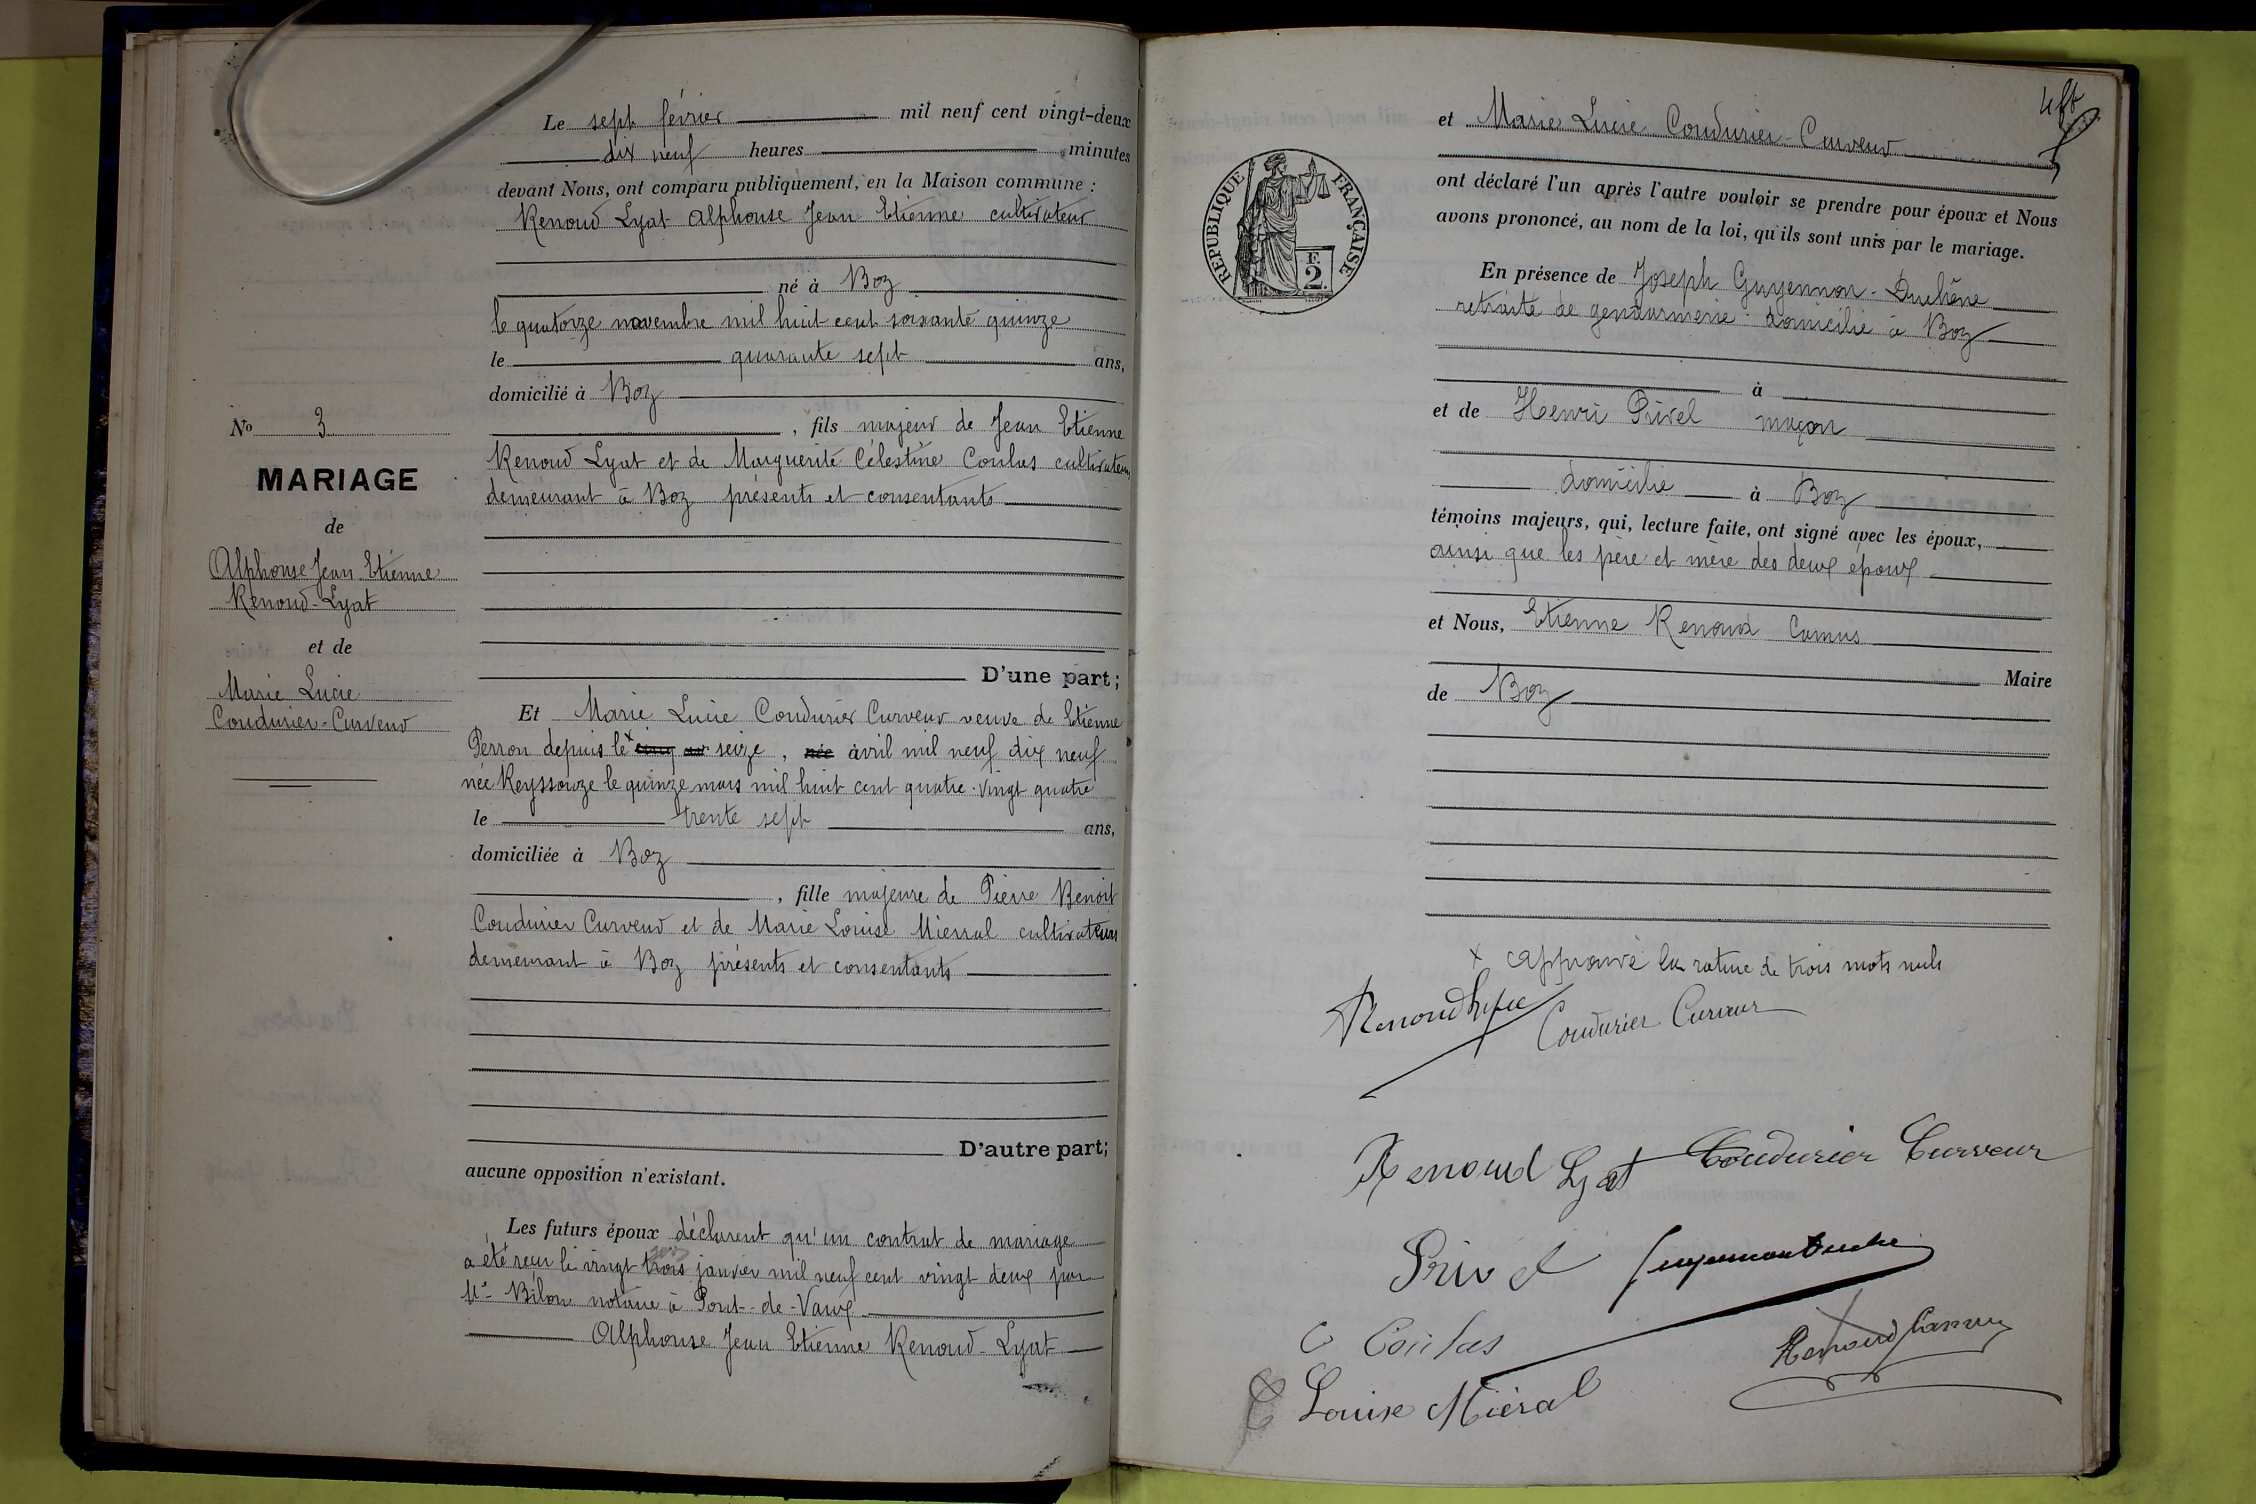 Le sept février mil neuf cent vingt-deux
dix neuf heures minutes
devant Nous, ont comparu publiquement, en la Maison commune :
Renoud Lyat Alphonse Jean Etienne cultivateur
né à Boz
le quatorze novembre mil huit cent soixante quinze
le quarante sept ans,
domicilié à Boz
, fils majeur de Jean Etienne
Renoud Lyat et de Marguerite Célestine Coulas cultivateurs
demeurant à Boz présents et consentants
D'une part;
Nº 3
MARIAGE
de
Alphonse Jean Etienne
Renoud-Lyat
et de
Marie Lucie
Coudurier-Curveur
Et Marie Lucie Coudurier Curveur veuve de Etienne
Perron depuis le x seize, née avril mil neuf dix neuf
née Reyssouze le quinze mars mil huit cent quatre-vingt quatre
le trente sept ans,
domiciliée à Boz
, fille majeure de Pierre Benoit
Coudurier Curveur et de Marie Louise Mierral cultivateurs
demeurant à Boz présents et consentants
D'autre part;
aucune opposition n'existant.
Les futurs époux déclarent qu'un contrat de mariage
a été reçu le vingt trois janvier mil neuf cent vingt deux par
Mº Bilon notaire à Pont-de-Vaux
Alphonse Jean Etienne Renoud-Lyat
RÉPUBLIQUE FRANÇAISE
F.
2.
et Marie Lucie Coudurier-Curveur
ont déclaré l'un après l'autre vouloir se prendre pour époux et Nous
avons prononcé, au nom de la loi, qu'ils sont unis par le mariage.
En présence de Joseph Guyennon-Duchêne
retraité de gendarmerie domicilié à Boz
à
et de Henri Privel maçon
domicilié à Boz
témoins majeurs, qui, lecture faite, ont signé avec les époux,
ainsi que les père et mère des deux époux
et Nous, Etienne Renoud Camus
Maire
de Boz
x approuvé la rature de trois mots nuls
Renoud Lyat
Coudurier Curveur
Renoud Lyat Coudurier Curveur
Privel Guyennon Duchêne
C Coulas
Renoud Camus
Louise Miéral